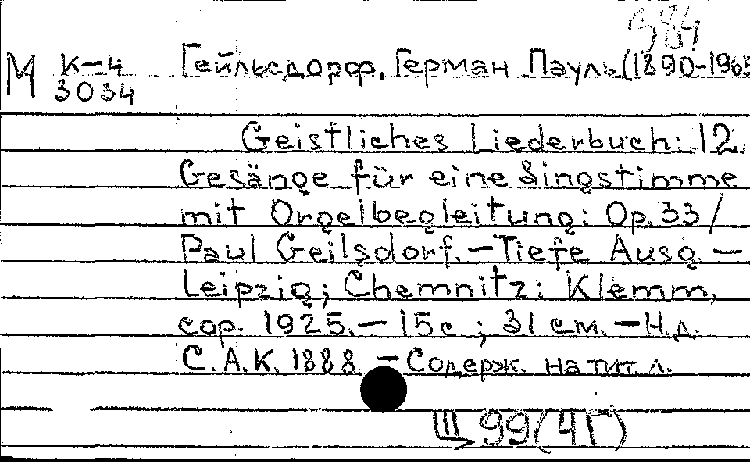 984
М К-4 3034 Гейльсдорф, Герман Пауль (1890-1965
Geistliches Liederbuch: 12
Gesänge für eine Singstimme
mit Orgelbegleitung: Op. 33 /
Paul Geilsdorf. – Tiefe Ausg. –
Leipzig; Chemnitz: Klemm,
cop. 1925. – 15 с ; 31 см. – Н.д.
C.A.K. 1888 – Содерж. на тит. л.
Ш 99(4Г)